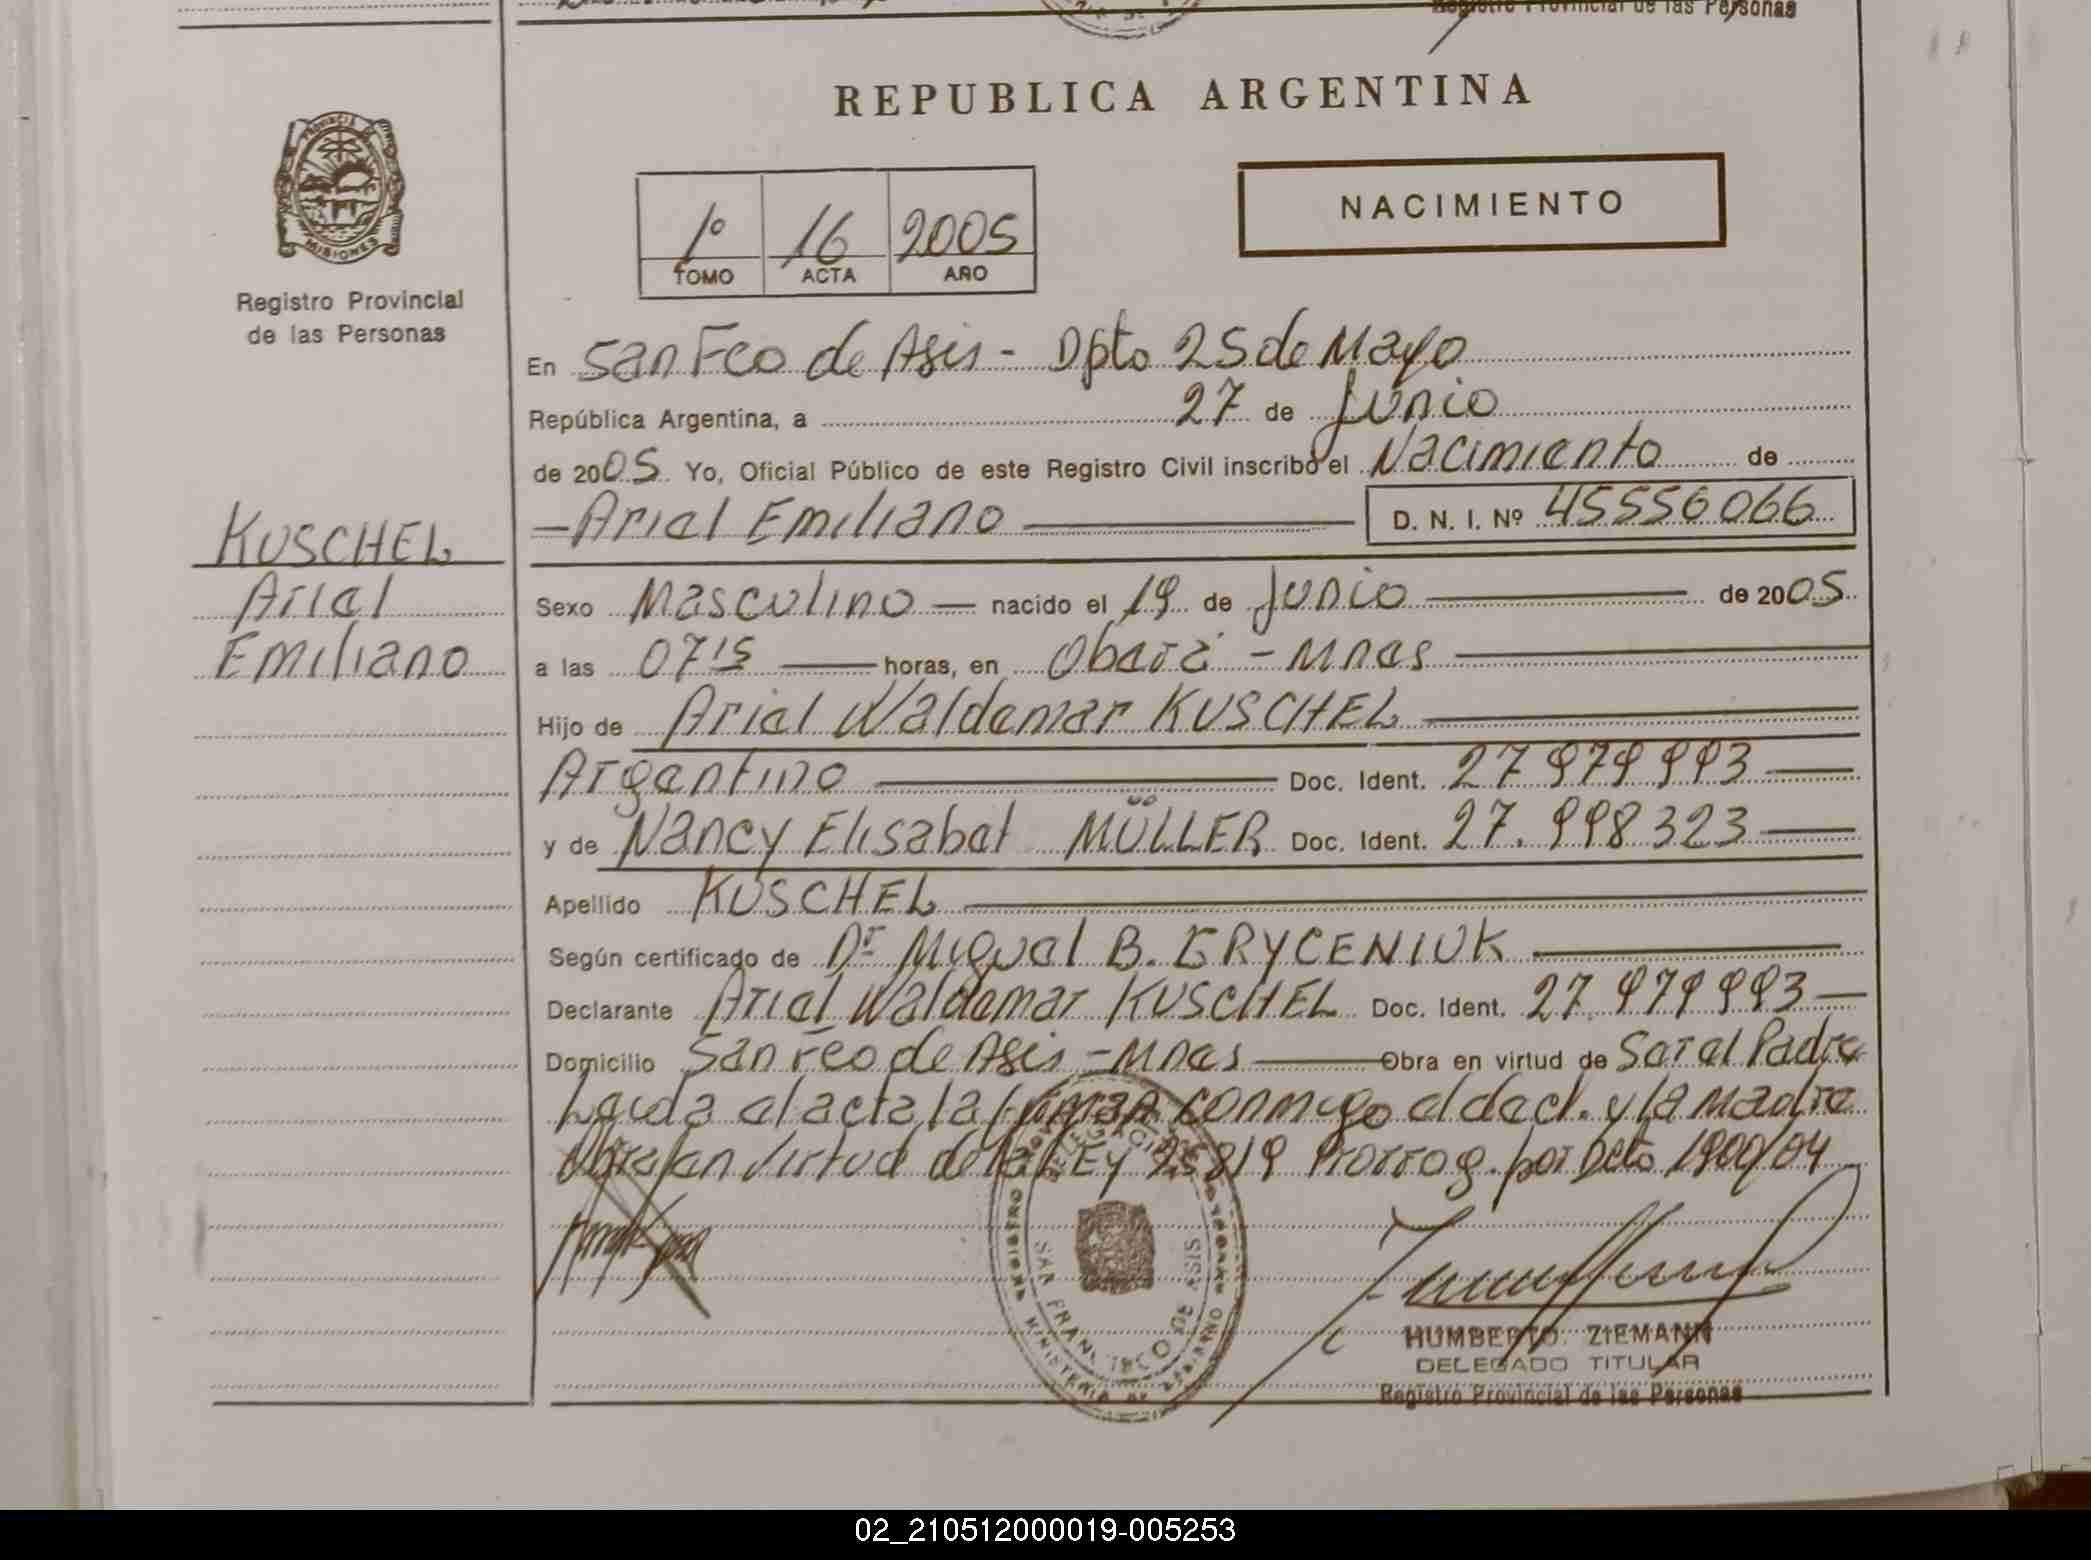 Registro Provincial de las Personas
REPUBLICA ARGENTINA
PROVINCIA DE
MISIONES
Registro Provincial
de las Personas
1º 16 2005
TOMO ACTA AÑO
NACIMIENTO
En San Fco de Asis - Dpto 25 de Mayo
República Argentina, a 27 de Junio
de 2005 Yo, Oficial Público de este Registro Civil inscribo el Nacimiento de
- Ariel Emiliano D. N. I. Nº 45556066
KUSCHEL
Ariel
Emiliano
Sexo Masculino - nacido el 19 de Junio de 2005
a las 07 15 horas, en Oberá - Mnes
Hijo de Ariel Waldemar KUSCHEL
Argentino Doc. Ident. 27 979 993
y de Nancy Elisabet MÜLLER Doc. Ident. 27.998 323
Apellido KUSCHEL
Según certificado de Dr Miguel B. GRYCENIUK
Declarante Ariel Waldemar KUSCHEL Doc. Ident. 27.979 993
Domicilio San Fco de Asis - Mnes Obra en virtud de Ser el Padre
Leida el acta, la firman conmigo el decl. y la Madre
Obra en virtud de la LEy 25819 Prorrog. por Dcto 1900/04
DELEGACION
SAN FRANCISCO DE ASIS
MINISTERIO DE GOBIERNO
HUMBERTO ZIEMANN
DELEGADO TITULAR
Registro Provincial de las Personas
02_210512000019-005253